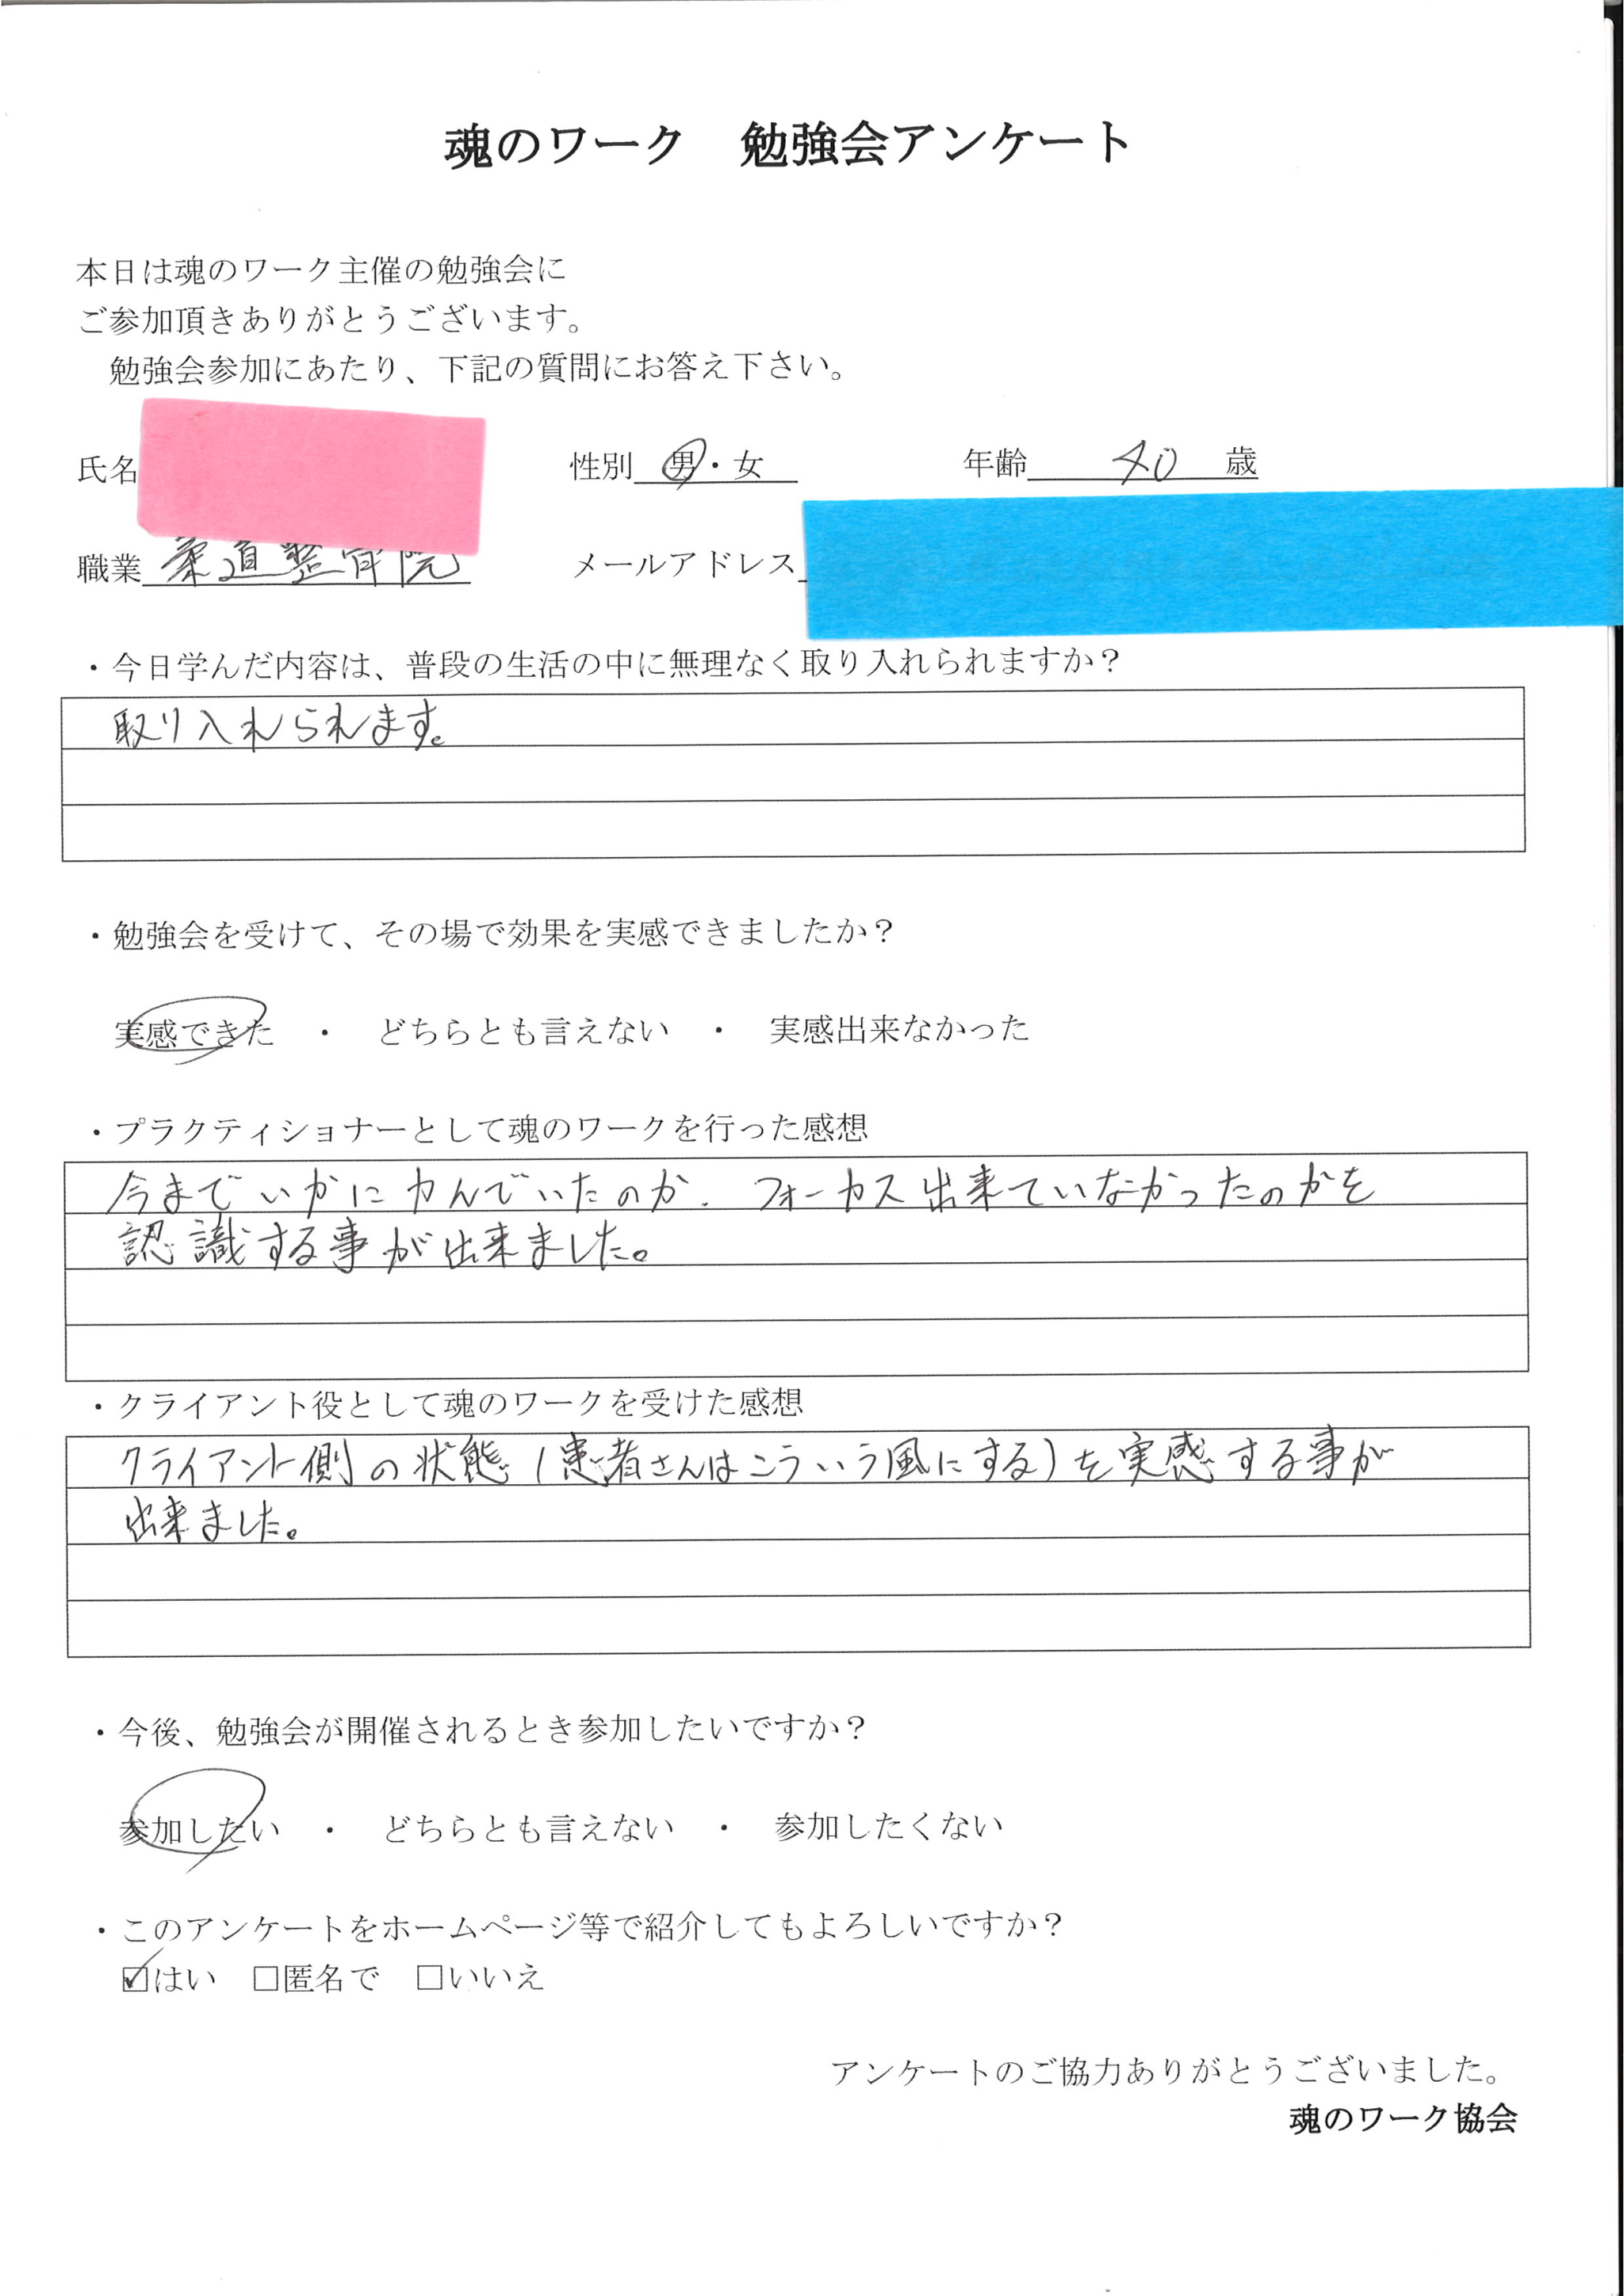 魂のワーク　勉強会アンケート
本日は魂のワーク主催の勉強会に
ご参加頂きありがとうございます。
勉強会参加にあたり、下記の質問にお答え下さい。
氏名 性別 男・女 年齢 40 歳
職業 柔道整骨院 メールアドレス
・今日学んだ内容は、普段の生活の中に無理なく取り入れられますか？
取り入れられます。
・勉強会を受けて、その場で効果を実感できましたか？
実感できた　・　どちらとも言えない　・　実感出来なかった
・プラクティショナーとして魂のワークを行った感想
今までいかに力んでいたのか、フォーカス出来ていなかったのかを
認識する事が出来ました。
・クライアント役として魂のワークを受けた感想
クライアント側の状態（患者さんはこういう風にする）を実感する事が
出来ました。
・今後、勉強会が開催されるとき参加したいですか？
参加したい　・　どちらとも言えない　・　参加したくない
・このアンケートをホームページ等で紹介してもよろしいですか？
☑はい　□匿名で　□いいえ
アンケートのご協力ありがとうございました。
魂のワーク協会